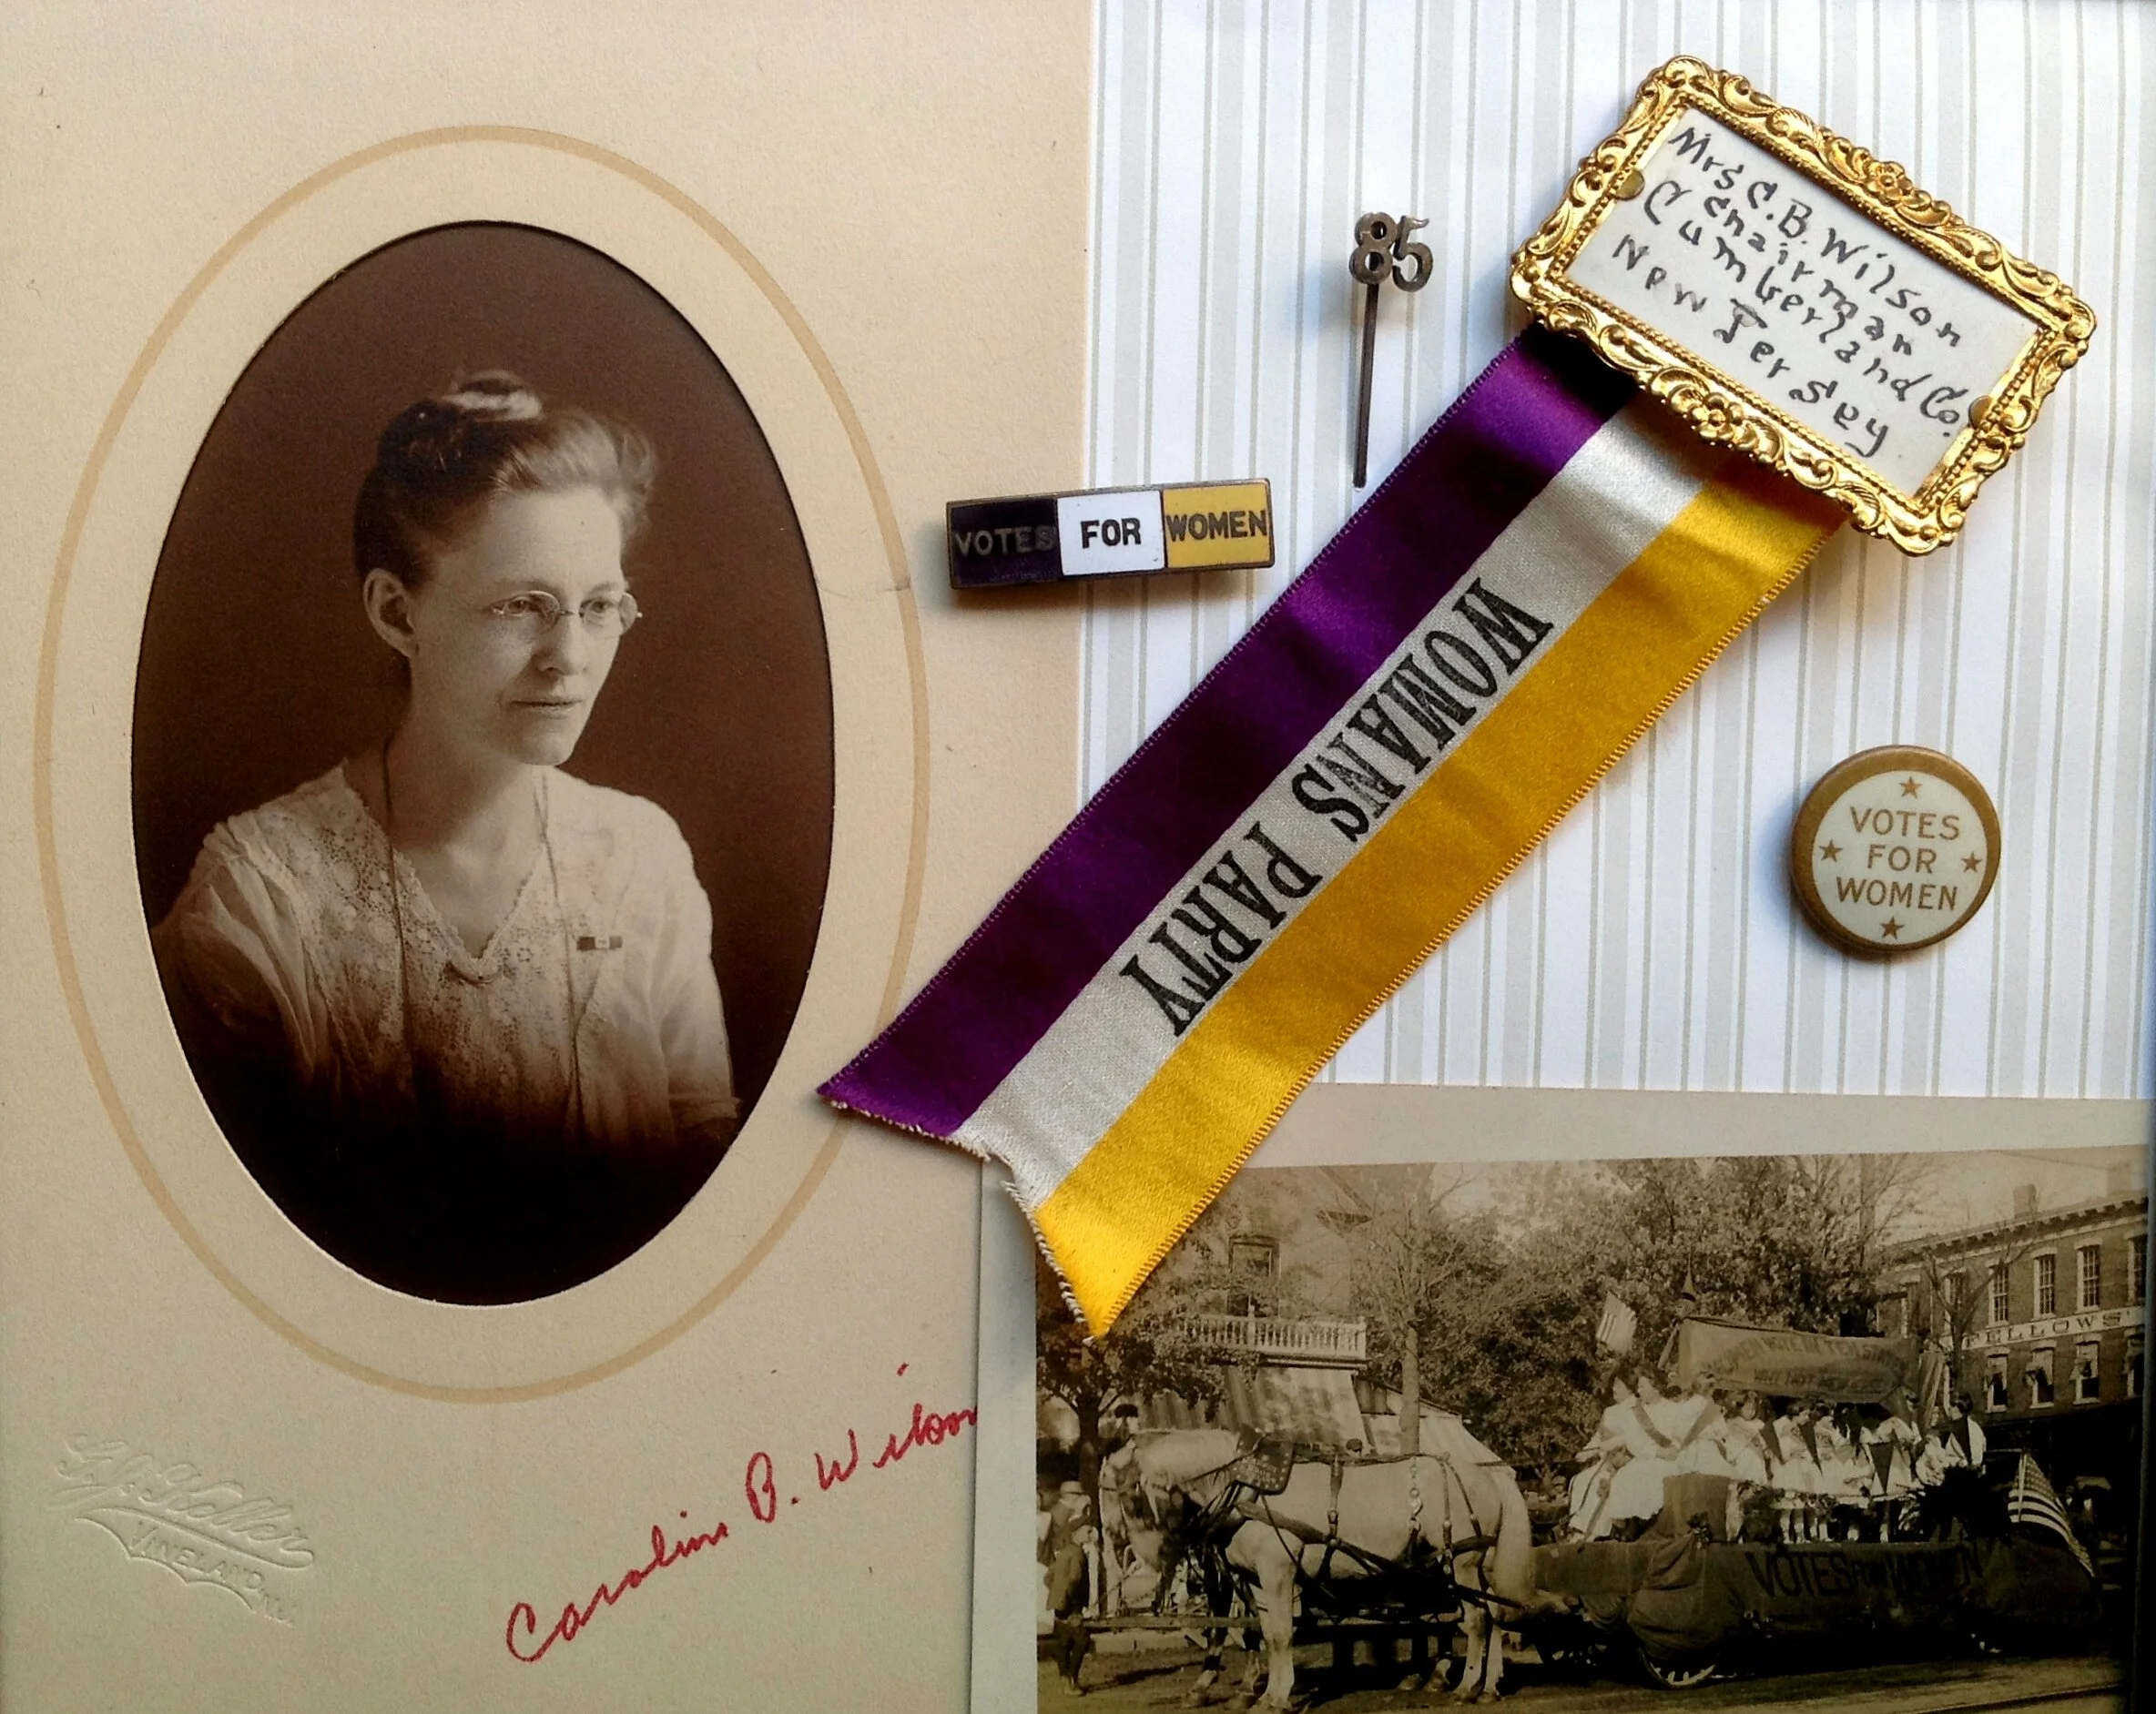 Mrs C. B. Wilson
Chairman
Cumberland Co.
New Jersey
85
VOTES FOR WOMEN
WOMANS PARTY
VOTES
FOR
WOMEN
Caroline B. Wilson
VINELAND
FELLOWS
VOTES FOR WOMEN